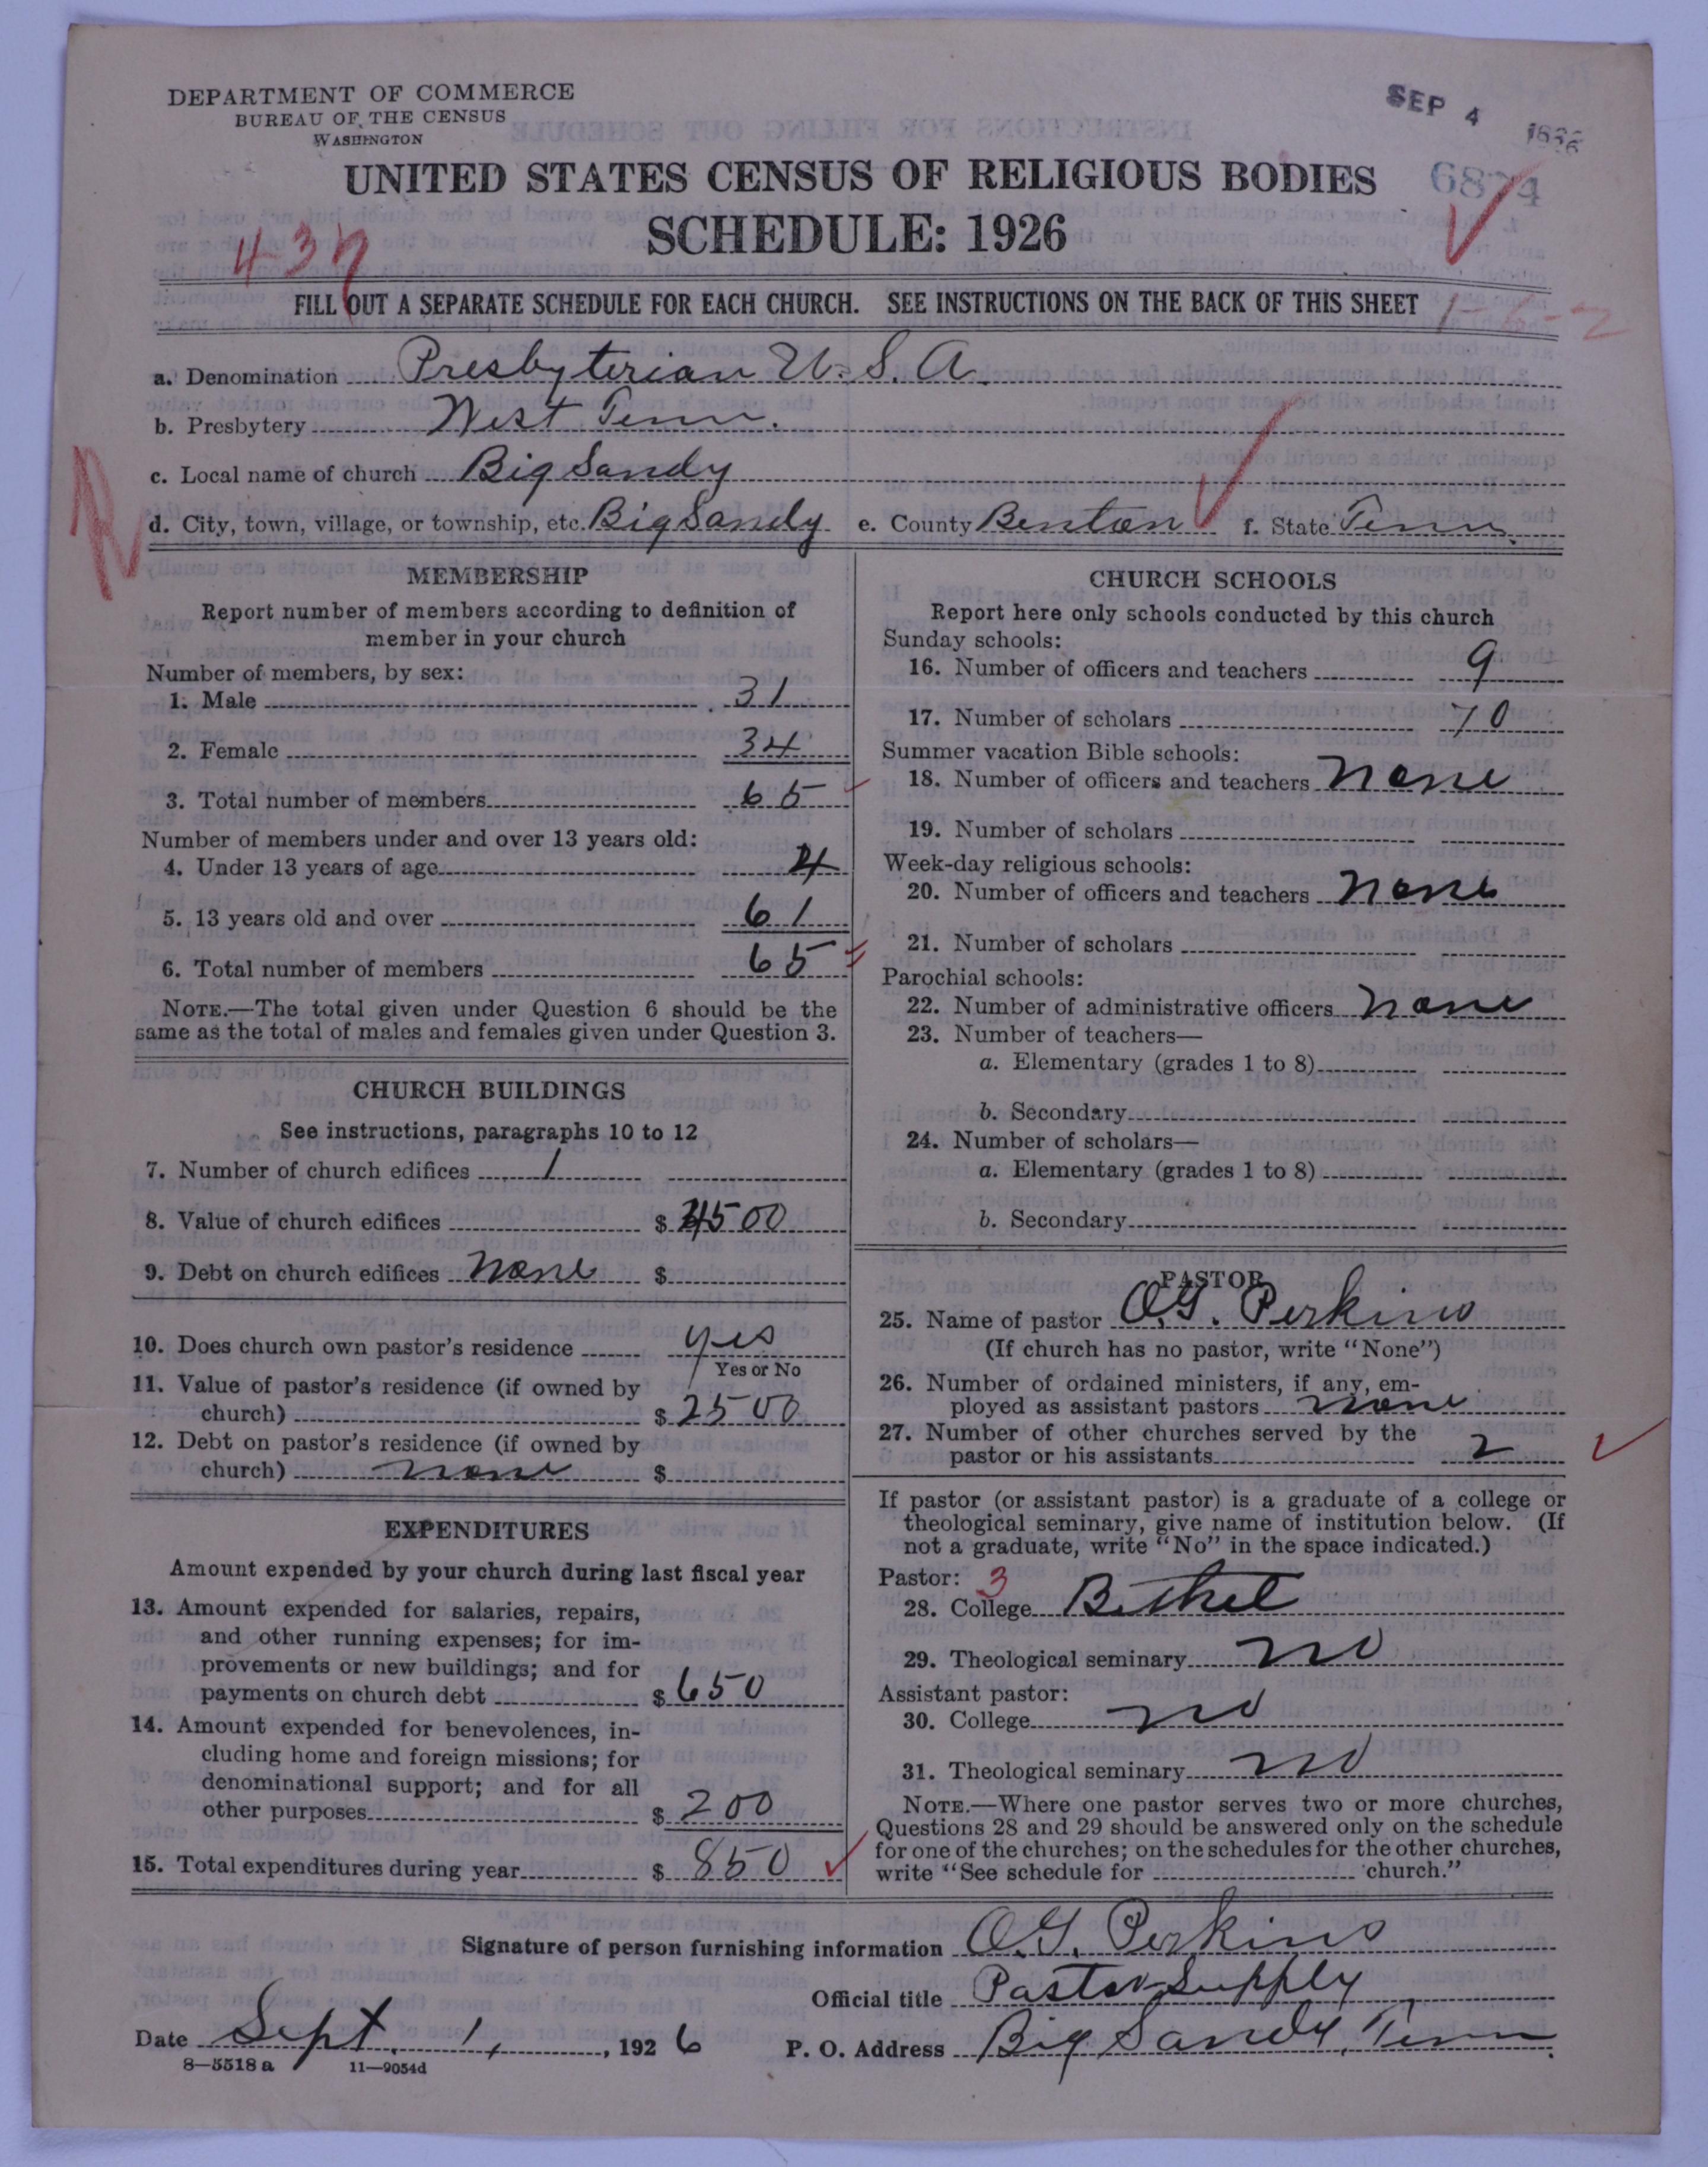 DEPARTMENT OF COMMERCE
BUREAU OF THE CENSUS
WASHINGTON
SEP 4
6874
UNITED STATES CENSUS OF RELIGIOUS BODIES
SCHEDULE: 1926
437
FILL OUT A SEPARATE SCHEDULE FOR EACH CHURCH. SEE INSTRUCTIONS ON THE BACK OF THIS SHEET
a. Denomination Presbyterian U. S. A.
b. Presbytery West Tenn.
c. Local name of church Big Sandy
d. City, town, village, or township, etc. Big Sandy e. County Benton f. State Tenn.
MEMBERSHIP
Report number of members according to definition of
member in your church
Number of members, by sex:
1. Male 31
2. Female 34
3. Total number of members 65
Number of members under and over 13 years old:
4. Under 13 years of age 4
5. 13 years old and over 61
6. Total number of members 65
NOTE.—The total given under Question 6 should be the
same as the total of males and females given under Question 3.
CHURCH BUILDINGS
See instructions, paragraphs 10 to 12
7. Number of church edifices 1
8. Value of church edifices $ 4500
9. Debt on church edifices None $
10. Does church own pastor's residence yes
Yes or No
11. Value of pastor's residence (if owned by
church) $ 2500
12. Debt on pastor's residence (if owned by
church) none $
EXPENDITURES
Amount expended by your church during last fiscal year
13. Amount expended for salaries, repairs,
and other running expenses; for im-
provements or new buildings; and for
payments on church debt $ 650
14. Amount expended for benevolences, in-
cluding home and foreign missions; for
denominational support; and for all
other purposes $ 200
15. Total expenditures during year $ 850
CHURCH SCHOOLS
Report here only schools conducted by this church
Sunday schools:
16. Number of officers and teachers 9
17. Number of scholars 70
Summer vacation Bible schools:
18. Number of officers and teachers None
19. Number of scholars
Week-day religious schools:
20. Number of officers and teachers None
21. Number of scholars
Parochial schools:
22. Number of administrative officers none
23. Number of teachers—
a. Elementary (grades 1 to 8)
b. Secondary
24. Number of scholars—
a. Elementary (grades 1 to 8)
b. Secondary
PASTOR
25. Name of pastor O.G. Perkins
(If church has no pastor, write "None")
26. Number of ordained ministers, if any, em-
ployed as assistant pastors none
27. Number of other churches served by the
pastor or his assistants 2
If pastor (or assistant pastor) is a graduate of a college or
theological seminary, give name of institution below. (If
not a graduate, write "No" in the space indicated.)
Pastor: 3
28. College Bethel
29. Theological seminary no
Assistant pastor:
30. College no
31. Theological seminary no
NOTE.—Where one pastor serves two or more churches,
Questions 28 and 29 should be answered only on the schedule
for one of the churches; on the schedules for the other churches,
write "See schedule for church."
Signature of person furnishing information O.G. Perkins
Official title Pastor Supply
Date Sept. 1, 1926 P. O. Address Big Sandy, Tenn.
8—5518 a 11—9054d